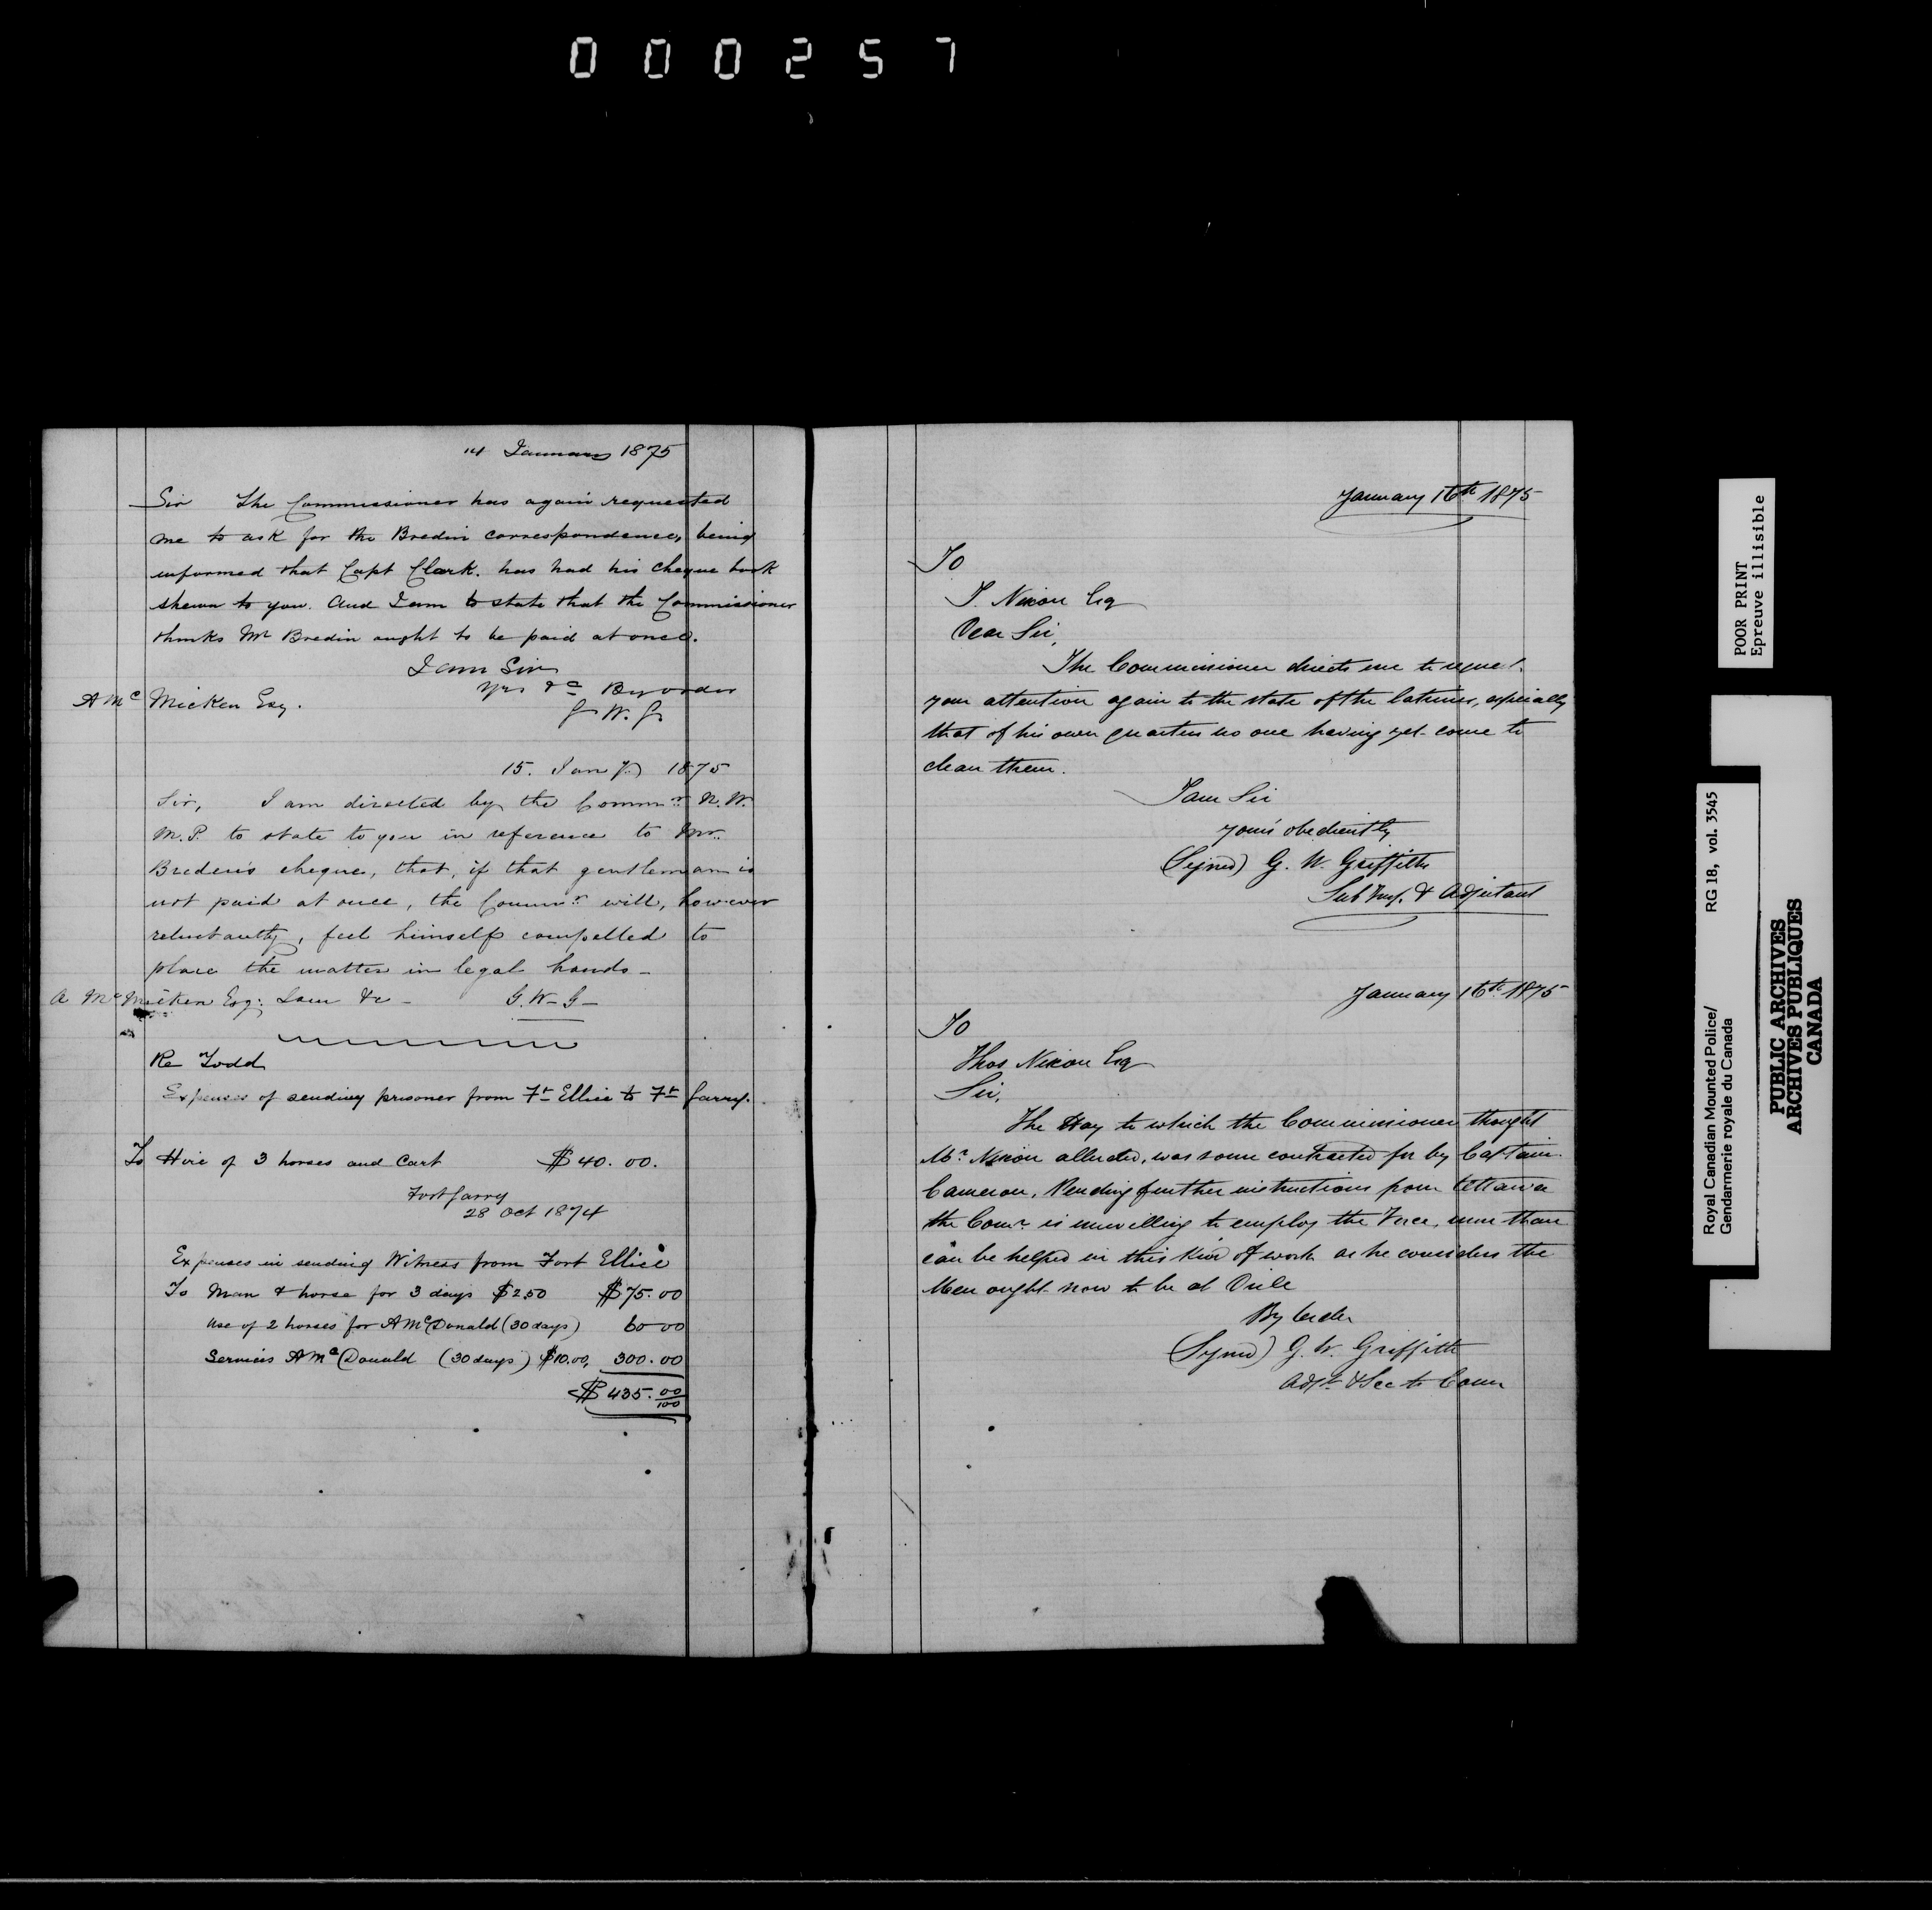 000257
14 January 1875
Sir The Commissioner has again requested
me to ask for the Bredin correspondence, being
informed that Capt Clark. has had his cheque book
shewn to you. And I am to state that the Commissioner
thinks Mr Bredin ought to be paid at once.
I am Sir
Yrs &c By order
G W. G
A McMicken Esq.
15. Jany 1875
Sir, I am directed by the Commr. N. W.
M. P. to state to you in reference to Mr.
Bredin's cheque, that, if that gentleman is
not paid at once, the Commr. will, however
reluctantly, feel himself compelled to
place the matter in legal hands -
A McMicken Esq: I am &c - G. W - G -
Re Todd
Expenses of sending prisoner from Ft Ellice to Ft Garry.
To Hire of 3 horses and Cart $40.00.
Fort Garry
28 Oct 1874
Expenses in sending Witness from Fort Ellice
To Man & horse for 3 days $2.50 $75.00
Use of 2 horses for A McDonald (30 days) 60 00
Services A McDonald (30 days) $10.00, 300.00
$435.00/100
January 16th 1875
To
T. Nixon Esq
Dear Sir,
The Commissioner directs me to request
your attention again to the state of the latrines, especially
that of his own quarters no one having yet come to
clean them.
I am Sir
yours obediently
(Signed) G. W. Griffith
Sub Insp. & Adjutant
January 16th 1875
To
Thos Nixon Esq
Sir,
The Hay to which the Commissioner thought
Mr. Nixon alluded, was some contracted for by Captain
Cameron. Pending further instructions from Ottawa
the Comr. is unwilling to employ the Force, more than
can be helped in this kind of work as he considers the
Men ought now to be at Drill
By Order
(Signed) G. W. Griffith
Adjt & Sec to Comr
POOR PRINT
Epreuve illisible
Royal Canadian Mounted Police/
Gendarmerie royale du Canada
RG 18, vol. 3545
PUBLIC ARCHIVES
ARCHIVES PUBLIQUES
CANADA